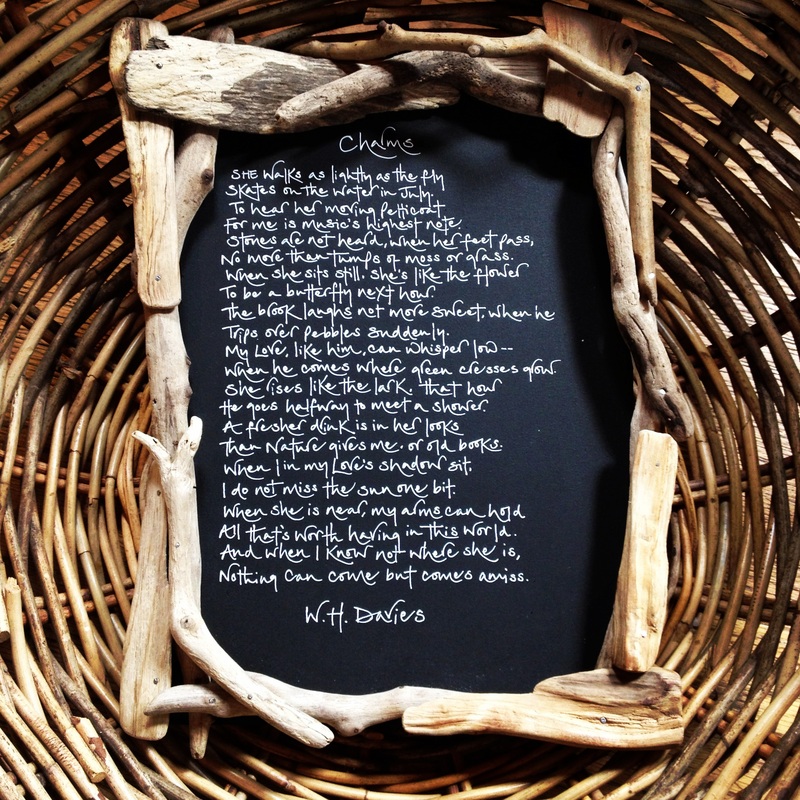 Charms
SHE walks as lightly as the fly
Skates on the water in July.
To hear her moving petticoat
For me is music's highest note.
Stones are not heard, when her feet pass,
No more than tumps of moss or grass.
When she sits still, she's like the flower
To be a butterfly next hour.
The brook laughs not more sweet, when he
Trips over pebbles suddenly.
My Love, like him, can whisper low --
When he comes where green cresses grow.
She rises like the lark, that hour
He goes halfway to meet a shower.
A fresher drink is in her looks
Than Nature gives me, or old books.
When I in my Love's shadow sit,
I do not miss the sun one bit.
When she is near, my arms can hold
All that's worth having in this world.
And when I know not where she is,
Nothing can come but comes amiss.
W.H. Davies